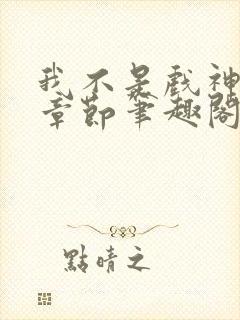 我不是戲神
章節筆趣閣
點晴之